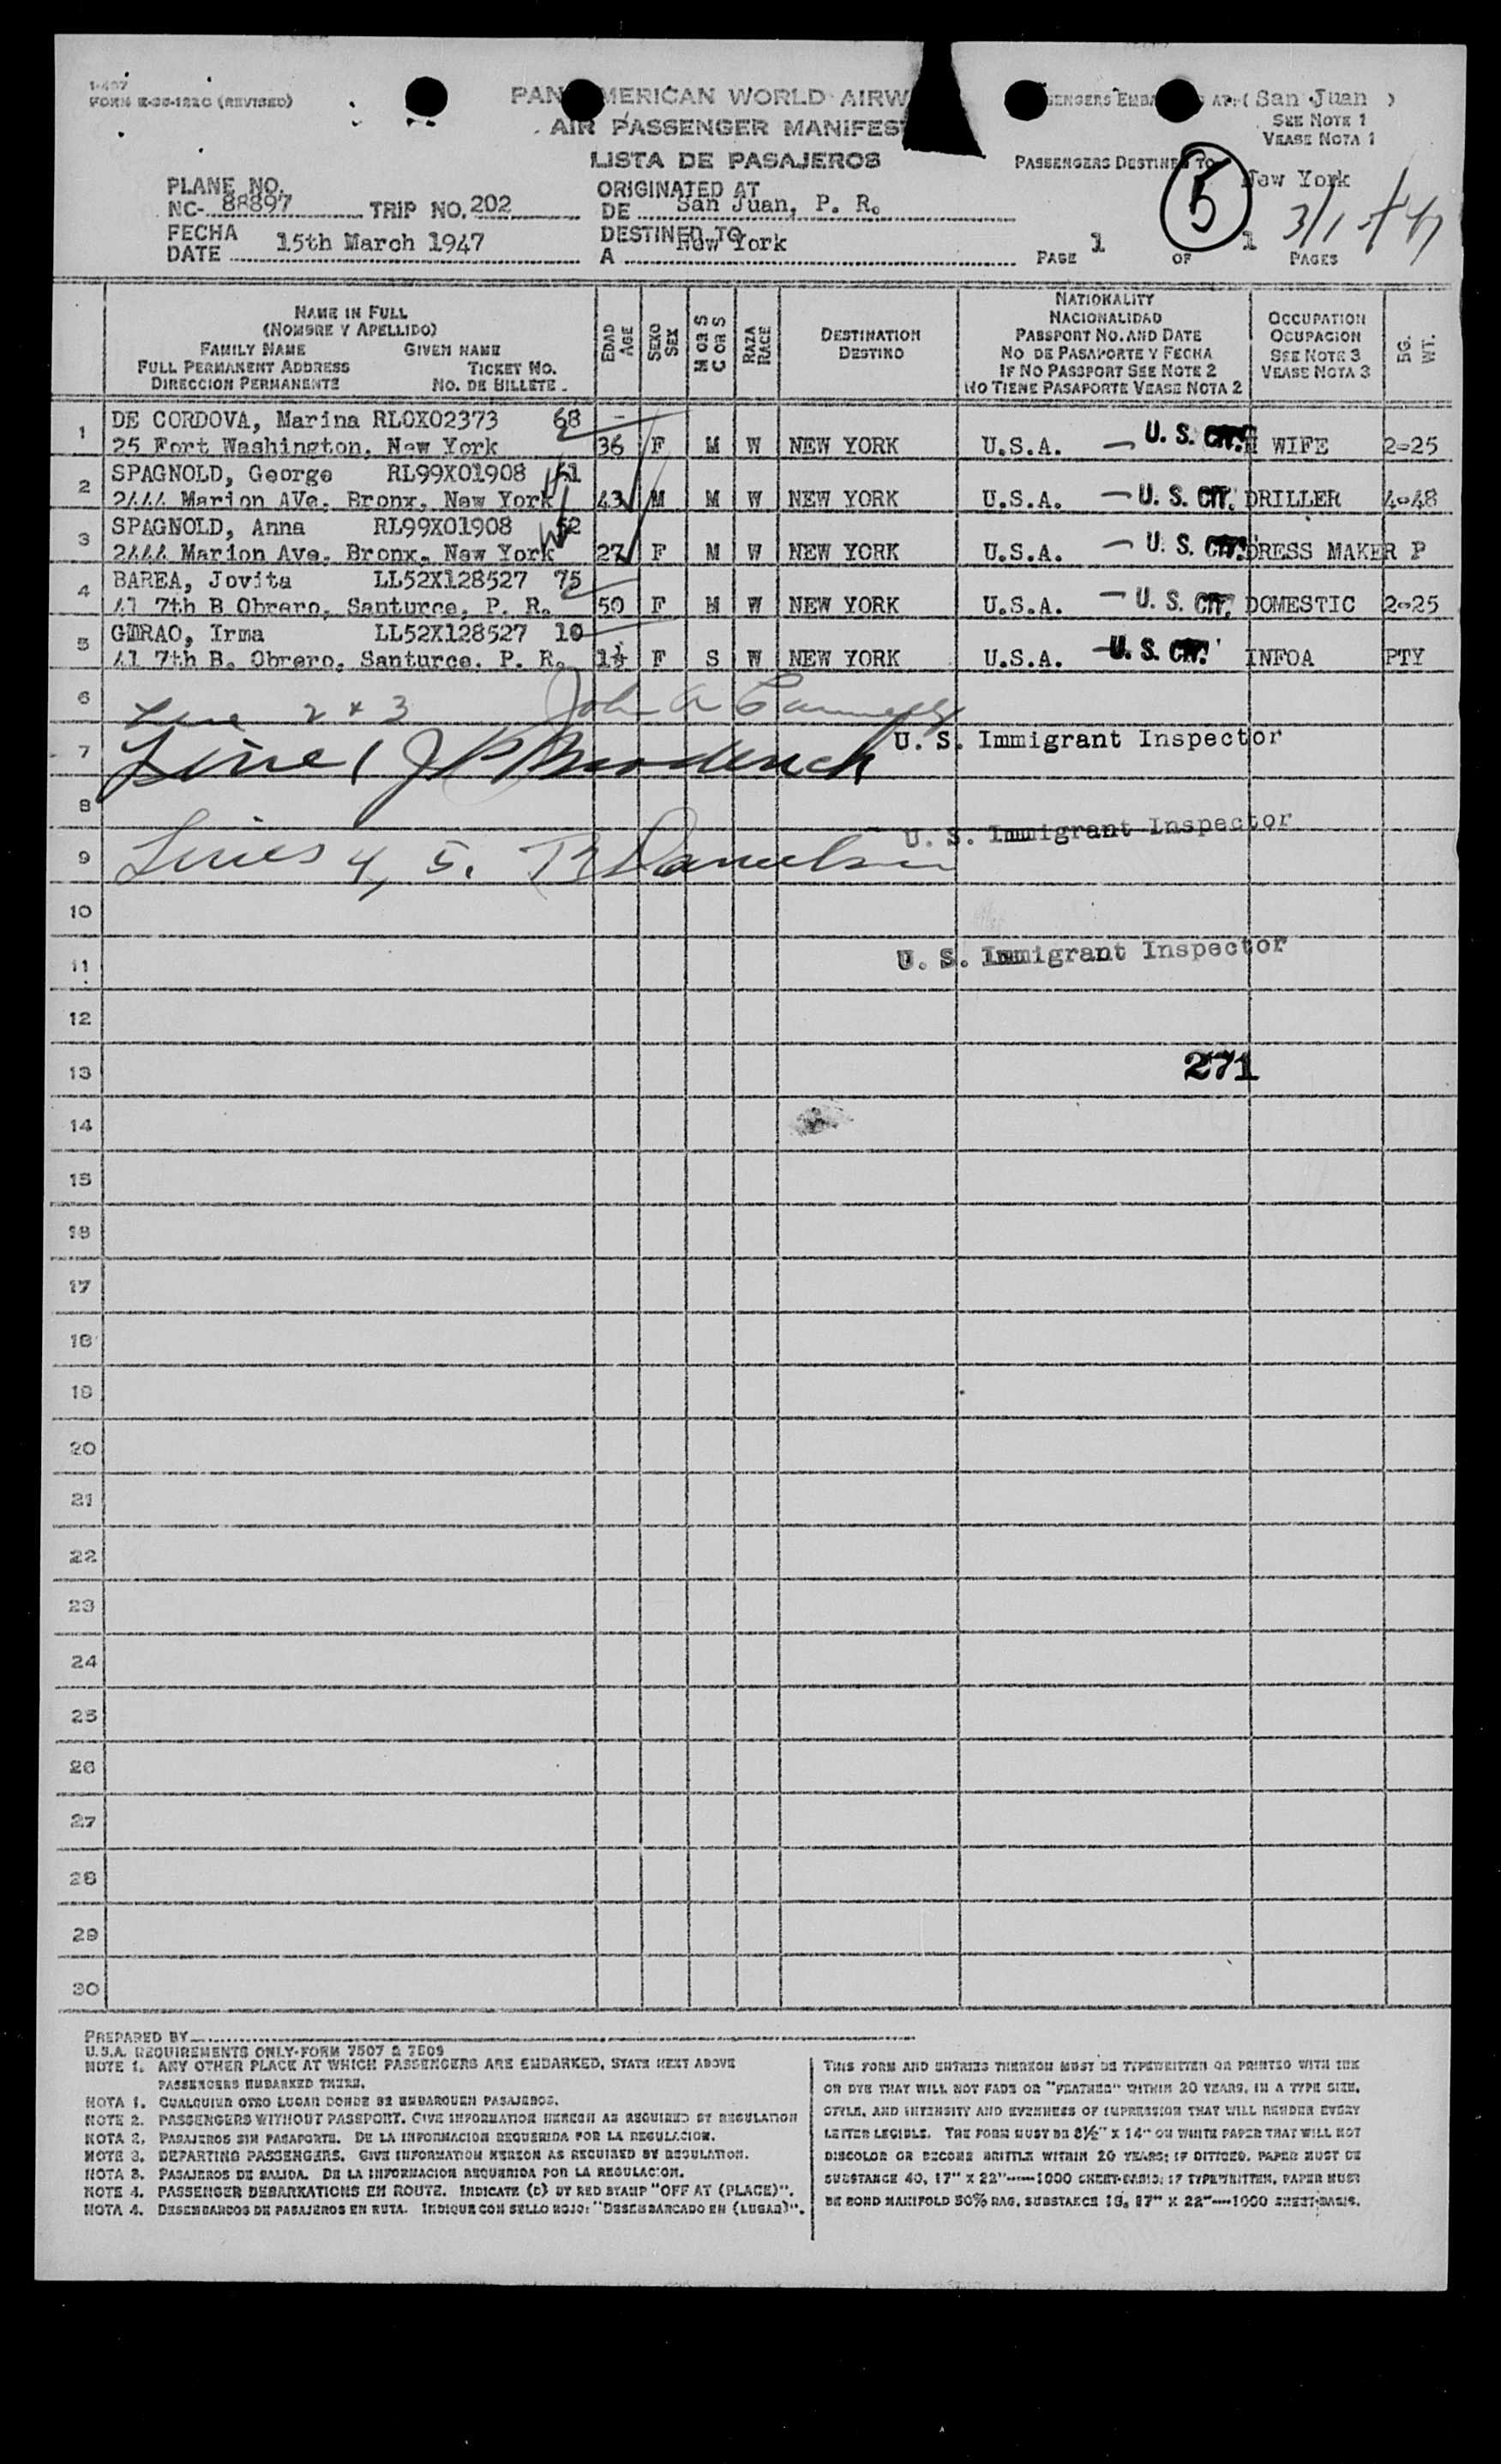 I-407
FORM E-35-122C (REVISED)
PAN AMERICAN WORLD AIRW
AIR PASSENGER MANIFES
LISTA DE PASAJEROS
AT: (San Juan)
SEE NOTE 1
VEASE NOTA 1
PASSENGERS DESTINED TO
New York
5
3/15/47
PLANE NO.
NC- 88897 TRIP NO. 202
ORIGINATED AT
DE San Juan, P. R.
FECHA
DATE 15th March 1947
DESTINED TO
A New York
PAGE 1 OF 1 PAGES
NAME IN FULL
(NOMBRE Y APELLIDO)
FAMILY NAME GIVEN NAME
FULL PERMANENT ADDRESS TICKET NO.
DIRECCION PERMANENTE NO. DE BILLETE
EDAD AGE
SEXO SEX
M OR S
C OR S
RAZA RACE
DESTINATION
DESTINO
NATIONALITY
NACIONALIDAD
PASSPORT NO. AND DATE
NO DE PASAPORTE Y FECHA
IF NO PASSPORT SEE NOTE 2
NO TIENE PASAPORTE VEASE NOTA 2
OCCUPATION
OCUPACION
SEE NOTE 3
VEASE NOTA 3
BG. WT.
1 DE CORDOVA, Marina RLOX02373 68 -
25 Fort Washington, New York 36 F M W NEW YORK U.S.A. — U. S. CIT. H WIFE 2-25
2 SPAGNOLD, George RL99X01908 51
2444 Marion AVe. Bronx, New York 43 M M W NEW YORK U.S.A. — U. S. CIT. DRILLER 4-48
3 SPAGNOLD, Anna RL99X01908 52
2444 Marion Ave. Bronx, New York 27 F M W NEW YORK U.S.A. — U. S. CIT. DRESS MAKER P
4 BAREA, Jovita LL52X128527 75
41 7th B Obrero, Santurce, P. R. 50 F M W NEW YORK U.S.A. — U. S. CIT. DOMESTIC 2-25
5 Irma LL52X128527 10
41 7th B. Obrero, Santurce, P. R. 1½ F S W NEW YORK U.S.A. — U. S. CIT. INFOA PTY
6 Line 2 + 3 John A
U. S. Immigrant Inspector
7 Line 1
8
U. S. Immigrant Inspector
9 Lines 4, 5. Danielsen
10
11 U. S. Immigrant Inspector
12
13 271
14
15
16
17
18
19
20
21
22
23
24
25
26
27
28
29
30
PREPARED BY
U.S.A. REQUIREMENTS ONLY-FORM 7507 & 7509
NOTE 1. ANY OTHER PLACE AT WHICH PASSENGERS ARE EMBARKED, STATE NEXT ABOVE
PASSENGERS EMBARKED THERE.
NOTA 1. CUALQUIER OTRO LUGAR DONDE SE EMBARQUEN PASAJEROS.
NOTE 2. PASSENGERS WITHOUT PASSPORT. GIVE INFORMATION HEREON AS REQUIRED BY REGULATION
NOTA 2. PASAJEROS SIN PASAPORTE. DE LA INFORMACION REQUERIDA POR LA REGULACION.
NOTE 3. DEPARTING PASSENGERS. GIVE INFORMATION HEREON AS REQUIRED BY REGULATION.
NOTA 3. PASAJEROS DE SALIDA. DE LA INFORMACION REQUERIDA POR LA REGULACION.
NOTE 4. PASSENGER DEBARKATIONS EN ROUTE. INDICATE (D) BY RED STAMP "OFF AT (PLACE)".
NOTA 4. DESEMBARCOS DE PASAJEROS EN RUTA. INDIQUE CON SELLO ROJO: "DESEMBARCADO EN (LUGAR)".
THIS FORM AND ENTRIES THEREON MUST BE TYPEWRITTEN OR PRINTED WITH INK
OR DYE THAT WILL NOT FADE OR "FEATHER" WITHIN 20 YEARS, IN A TYPE SIZE,
STYLE, AND INTENSITY AND EVENNESS OF IMPRESSION THAT WILL RENDER EVERY
LETTER LEGIBLE. THE FORM MUST BE 8½" X 14" ON WHITE PAPER THAT WILL NOT
DISCOLOR OR BECOME BRITTLE WITHIN 20 YEARS; IF DITTOED, PAPER MUST BE
SUBSTANCE 40, 17" X 22"----1000 SHEET-BASIS; IF TYPEWRITTEN, PAPER MUST
BE BOND MANIFOLD 50% RAG, SUBSTANCE 16, 17" X 22"----1000 SHEET-BASIS.